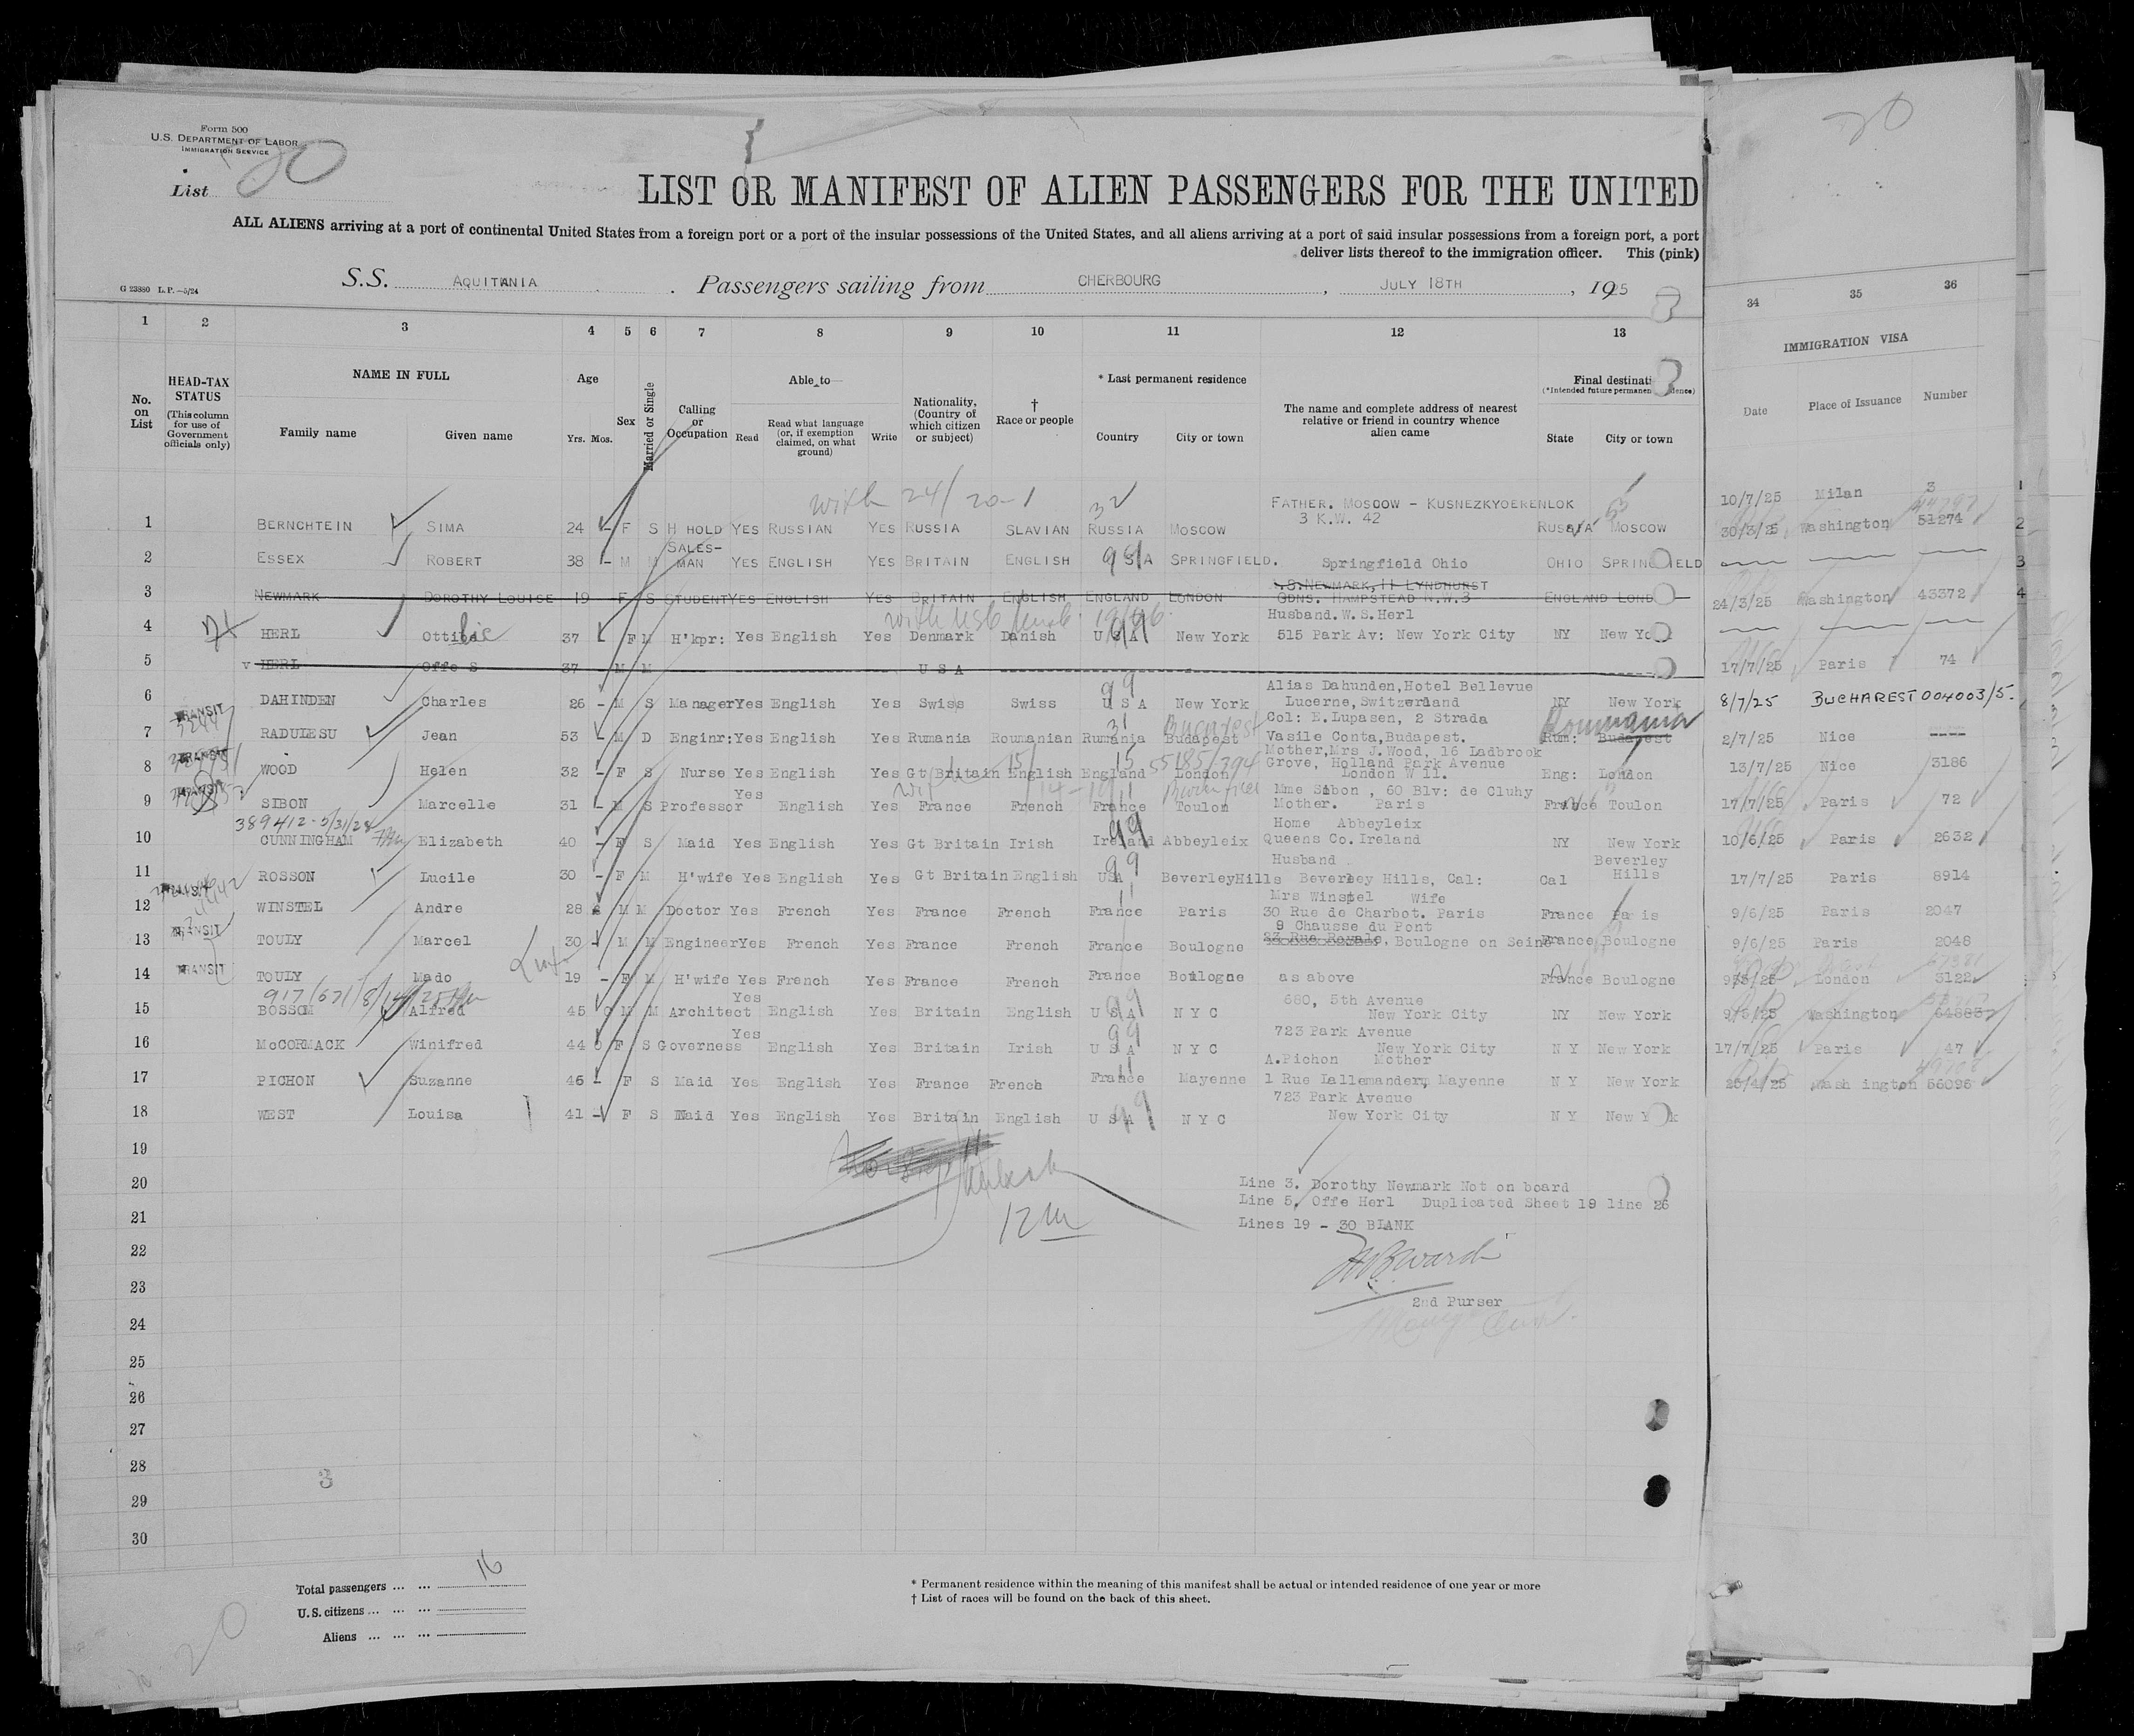 Form 500
U.S. DEPARTMENT OF LABOR
IMMIGRATION SERVICE
List 20
20
LIST OR MANIFEST OF ALIEN PASSENGERS FOR THE UNITED
ALL ALIENS arriving at a port of continental United States from a foreign port or a port of the insular possessions of the United States, and all aliens arriving at a port of said insular possessions from a foreign port, a port
deliver lists thereof to the immigration officer. This (pink)
G 23880 L.P.—5/24
S.S. AQUITANIA. Passengers sailing from CHERBOURG, JULY 18TH, 1925
1 2 3 4 5 6 7 8 9 10 11 12 13 34 35 36
No. on List
HEAD-TAX STATUS (This column for use of Government officials only)
NAME IN FULL
Family name Given name
Age Yrs. Mos.
Sex
Married or Single
Calling or Occupation
Able to
Read Read what language (or, if exemption claimed, on what ground) Write
Nationality, (Country of which citizen or subject)
† Race or people
* Last permanent residence
Country City or town
The name and complete address of nearest relative or friend in country whence alien came
Final destinati
(*Intended future permanen dence)
State City or town
IMMIGRATION VISA
Date Place of Issuance Number
with 24/20-1
FATHER. MOSCOW - KUSNEZKYOERENLOK
3 K.W. 42
1 BERNCHTEIN SIMA 24 - F S H HOLD YES RUSSIAN YES RUSSIA SLAVIAN RUSSIA MOSCOW RUSSIA MOSCOW
2 ESSEX ROBERT 38 - M M SALES-MAN YES ENGLISH YES BRITAIN ENGLISH USA SPRINGFIELD. Springfield Ohio OHIO SPRINGFIELD
3 NEWMARK DOROTHY LOUISE 19 F S STUDENT YES ENGLISH YES BRITAIN ENGLISH ENGLAND LONDON NEWMARK, 11 LYNDHURST GDNS. HAMPSTEAD N.W.3 ENGLAND LOND
4 HERL Ottilie 37 F M H'kpr: Yes English Yes Denmark Danish U S A New York Husband. W.S.Herl 515 Park Av: New York City NY New York
5 v HERL Offe S 37 - M M U S A
6 DAHINDEN Charles 26 - M S Manager Yes English Yes Swiss Swiss U S A New York Alias Dahunden, Hotel Bellevue Lucerne, Switzerland NY New York
7 TRANSIT RADULESU Jean 53 M D Enginr: Yes English Yes Rumania Roumanian Rumania Budapest Col: E.Lupasen, 2 Strada Vasile Conta, Budapest. Rum: Budapest
Roumania
8 TRANSIT WOOD Helen 32 - F S Nurse Yes English Yes Gt Britain English England London Mother, Mrs J. Wood, 16 Ladbrook Grove, Holland Park Avenue London W 11. Eng: London
9 TRANSIT SIBON Marcelle 31 - M S Professor Yes English Yes France French France Toulon Mme Sibon, 60 Blv: de Cluhy Mother. Paris France Toulon
389412-5/31/28
10 CUNNINGHAM Elizabeth 40 - F S Maid Yes English Yes Gt Britain Irish Ireland Abbeyleix Home Abbeyleix Queens Co. Ireland NY New York
11 ROSSON Lucile 30 - F M H'wife Yes English Yes Gt Britain English USA Beverley Hills Husband Beverley Hills, Cal: Cal Beverley Hills
12 TRANSIT WINSTEL Andre 28 M M Doctor Yes French Yes France French France Paris Mrs Winstel Wife 30 Rue de Charbot. Paris France Paris
13 TRANSIT TOULY Marcel 30 - M M Engineer Yes French Yes France French France Boulogne 9 Chausse du Pont 23 Rue Royale, Boulogne on Seine France Boulogne
14 TRANSIT TOULY Mado 19 - F M H'wife Yes French Yes France French France Boulogne as above France Boulogne
15 BOSSOM Alfred 45 0 M M Architect Yes English Yes Britain English U S A N Y C 680, 5th Avenue New York City NY New York
16 McCORMACK Winifred 44 0 F S Governess Yes English Yes Britain Irish U S A N Y C 723 Park Avenue New York City N Y New York
17 PICHON Suzanne 46 - F S Maid Yes English Yes France French France Mayenne A.Pichon Mother 1 Rue Lallemander, Mayenne N Y New York
18 WEST Louisa 41 - F S Maid Yes English Yes Britain English U S A N Y C 723 Park Avenue New York City N Y New York
19
20
21
22
23
24
25
26
27
28
29
30
10/7/25 Milan 3 1
30/3/25 Washington 51274 2
3
24/3/25 Washington 43372 4
17/7/25 Paris 74
8/7/25 BUCHAREST 004003/5.
2/7/25 Nice ----
13/7/25 Nice 3186
17/7/25 Paris 72
10/6/25 Paris 2632
17/7/25 Paris 8914
9/6/25 Paris 2047
9/6/25 Paris 2048
London 3122
Washington 64885
17/7/25 Paris 47
Wash ington 56096
12 M
Line 3. Dorothy Newmark Not on board
Line 5. Offe Herl Duplicated Sheet 19 line 26
Lines 19 - 30 BLANK
2nd Purser
3
Total passengers ... ... 16
U.S. citizens ... ... ...
Aliens ... ... ...
20
* Permanent residence within the meaning of this manifest shall be actual or intended residence of one year or more
† List of races will be found on the back of this sheet.